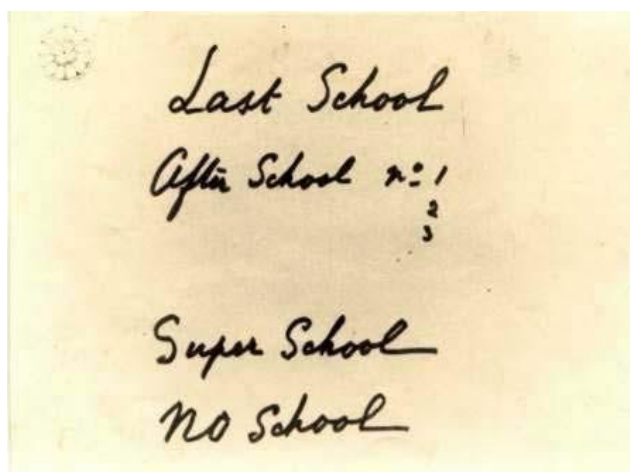 Last School
After School nº 1
2
3
Super School
NO School